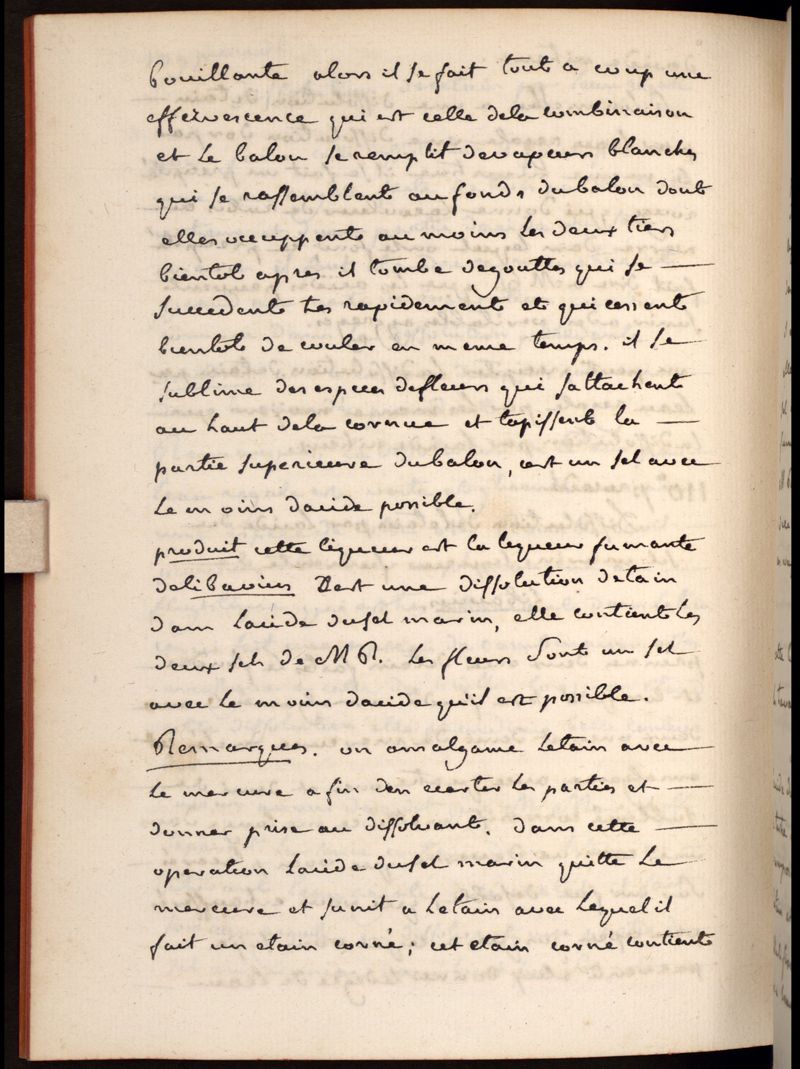 bouillante alors il se fait tout a coup une
effervescence qui est celle dela combinaison
et le balon se remplit devapeurs blanches
qui se rassemblent au fonds dubalon dont
elles occuppent au moins les deux tiers
bientot apres il tombe degouttes qui se —
succedent tres rapidement et qui cessent
bientot de couler en meme temps. il se
sublime des especes defleurs qui sattachent
au haut dela cornue et tapissent la —
partie superieure dubalon, cest un sel avec
le moins dacide possible.
produit cette liqueur est la liqueur fumante
delibavius est une dissolution detain
dans lacide dusel marin, elle contient les
deux sels de M R. les fleurs sont un sel
avec le moins dacide qu'il est possible.
Remarques. on amalgame letain avec
le mercure afin den ecarter les parties et —
donner prise au dissolvant. dans cette —
operation lacide dusel marin quitte le
mercure et sunit a letain avec lequel il
fait un etain corné; cet etain corné contient